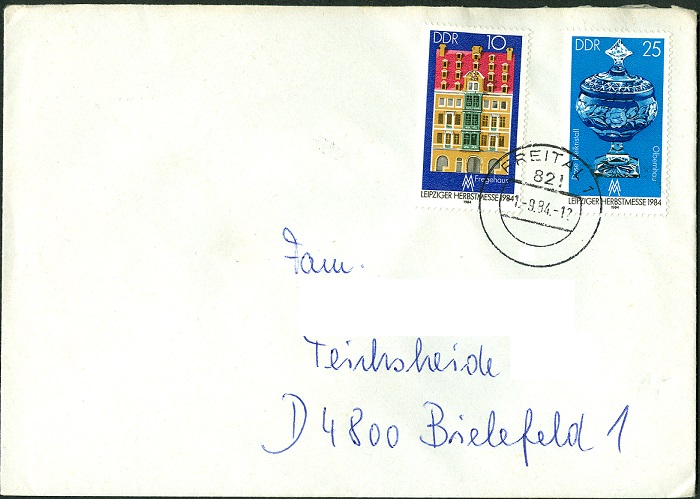 DDR 10
Fregehaus
LEIPZIGER HERBSTMESSE 1984
1984
DDR 25
Olbernhau
LEIPZIGER HERBSTMESSE 1984
1984
FREITAL 1
821
-9.84.-12
Fam.
Teichsheide
D 4800 Bielefeld 1